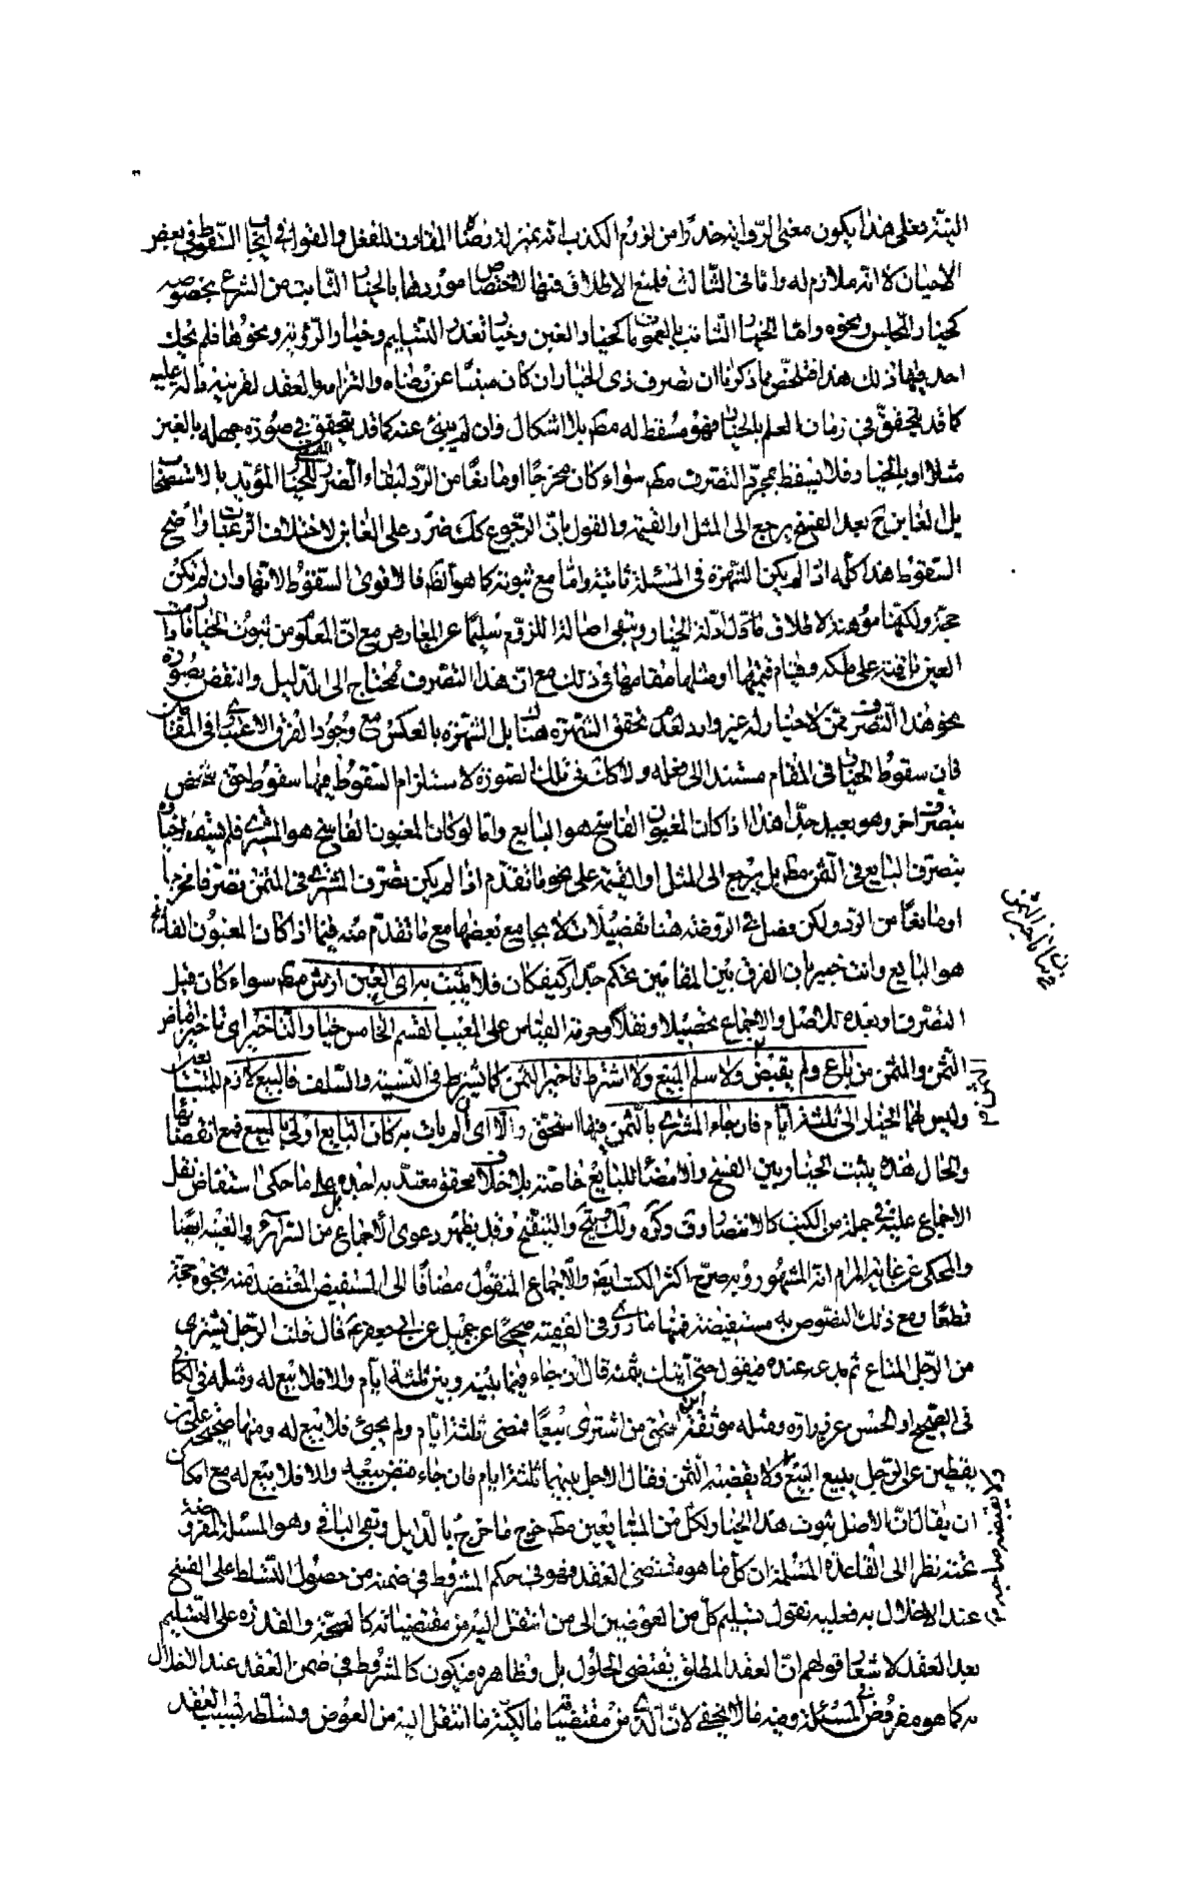 البتة فعلى هذا يكون معنى الرواية حذرا من لزوم الكذب انه يمنزلة رضا المقارن للفعل والقول في ايجاب السقوط في بعض
الاحيان لا انه ملازم له واما في الثالث فلمنع الاطلاق فيها لاختصاص موردها بالخيار الثابت من الشرع بخصوصه
كخيار المجلس ونحوه واما الخيار الثابت بالعمومات كخيار الغبن وخيار تعذر التسليم وخيار الرؤية ونحوها فلم يحك
احد فيها ذلك هذا فتلخص مما ذكرنا ان تصرف ذى الخيار ان كان مبنيا عن رضاه والتزامه بالعقد لقرينة دالة عليه
كما قد يتحقق في زمان العلم بالخيار فهو مسقط له مطم بلا اشكال وان لم ينبئ عنه كما قد يتحقق في صورة جهله بالغبن
مثلا او بالخيار فلا يسقط بمجرد التصرف مطم سواء كان مخرجا او مانعا من الرد لبقاء الضرر المثبت للخيار المؤيد بالاستصحاب
بل الغابن ح بعد الفسخ يرجع الى المثل او القيمة والقول بان الرجوع كك ضرر على الغابن لاختلاف الرغبات واضح
السقوط هذا كله اذا لم يكن الشهرة في المسئلة ثابتة واما مع ثبوته كما هو الظم فالاقوى السقوط لانها وان لم يكن
حجة ولكنها موهنة لاطلاق ما دل ادلة الخيار وتبقى اصالة اللزوم سليما عن المعارض مع ان المعلوم من ثبوت الخيار ما دامت
العين باقية على ملكه وقيام قيمتها او مثلها مقامها في ذلك مع ان هذا التصرف محتاج الى الدليل والنقض بصورة
نحو هذا التصرف ممن لا خيار له غير وارد لعدم تحقق الشهرة هناك بل الشهرة بالعكس مع وجود الفرق الاعتبارى في المقامين
فان سقوط الخيار في المقام مستند الى فعله ولا كك في تلك الصورة لاستلزام السقوط فيها سقوط حق شخص
بتصرف اخر وهو بعيد جدا هذا اذا كان المغبون الفاسخ هو البايع واما لو كان المغبون الفاسخ هو المشترى فلم يسقط خياره
بتصرف البايع في الثمن مطم بل يرجع الى المثل او القيمة على نحو ما تقدم اذا لم يكن تصرف المشترى في المثمن تصرفا مخرجا
او مانعا من الرد ولكن فصل في الروضة هنا تفصيلات لا يجامع بعضها مع ما تقدم منه فيما اذا كان المغبون الفاسخ
هو البايع وانت خبير بان الفرق بين المقامين تحكم جدا وكيف كان فلا يثبت به اى الغبن ارش مطم سواء كان قبل
التصرف او بعده للاصل والاجماع تحصيلا ونقلا وحرمة القياس على المعيب القسم الخامس خيار التاخير اى تاخير اقباض
الثمن والمثمن من باع ولم يقبض ولا سلم المبيع ولا اشترط تاخير الثمن كما يشترط في النسيئة والسلف فالبيع لازم للمتبايعين
وليس لهما الخيار الى ثلثة ايام فان جاء المشترى بالثمن فيها استحق والا اى ان لم يات به كان البايع اولى بالمبيع فمع انقضائها
والحال هذه يثبت الخيار بين الفسخ والامضاء للبايع خاصة بلا خلاف محقق معتد به اجده على ما حكى بل استفاض نقل
الاجماع عليه في جملة من الكتب كالانتصار وف وكره ولك وتيج والتنقيح وقد يظهر دعوى الاجماع من السرائر والغنية ايضا
والمحكى عن غاية المرام انه المشهور وبه صرح اكثر الكتب ايض والاجماع المنقول مضافا الى المستفيض المعتضد منه بنحوه حجة
قطعا ومع ذلك النصوص به مستفيضة فمنها ما روى في الفقيه صحيحا عن جميل عن ابى جعفر ع قال قلت الرجل يشترى
من الرجل المتاع ثم يدعه عنده فيقول حتى آتيك بثمنه قال ان جاء فيما بينه وبين ثلثة ايام والا فلا بيع له ومثله في الكافى
في الصحيح او الحسن عن زرارة ومثله موثقة اسحق من اشترى بيعا فمضى ثلثة ايام ولم يجئ فلا بيع له ومنها صحيحة على بن
يقطين عن الرجل يبيع البيع ولا يقبضه الثمن فقال الاجل بينهما ثلثة ايام فان جاء قبض بيعه والا فلا بيع له مع امكان
ان يقال ان الاصل ثبوت هذا الخيار لكل من المتبايعين مطم خرج ما خرج بالدليل وبقى الباقى وهو المسئلة المفروضة
تحته نظرا الى القاعدة المسلمة ان كل ما هو مقتضى العقد فهو في حكم المشروط في ضمنه من حصول التسلط على الفسخ
عند الاخلال به فعليه نقول تسليم كل من العوضين الى من انتقل اليه من مقتضياته كالصحة والقدرة على التسليم
بعد العقد لاشعار قولهم ان العقد المطلق يقتضى الحلول بل وظاهره فيكون كالمشروط في ضمن العقد عند الاخلال
به كما هو مفروض المسئلة وفيه ما لا يخفى لان الذى من مقتضياته مالكية ما انتقل اليه من العوض وتسلطه بسبب العقد
ولا يقبضه صاحبه